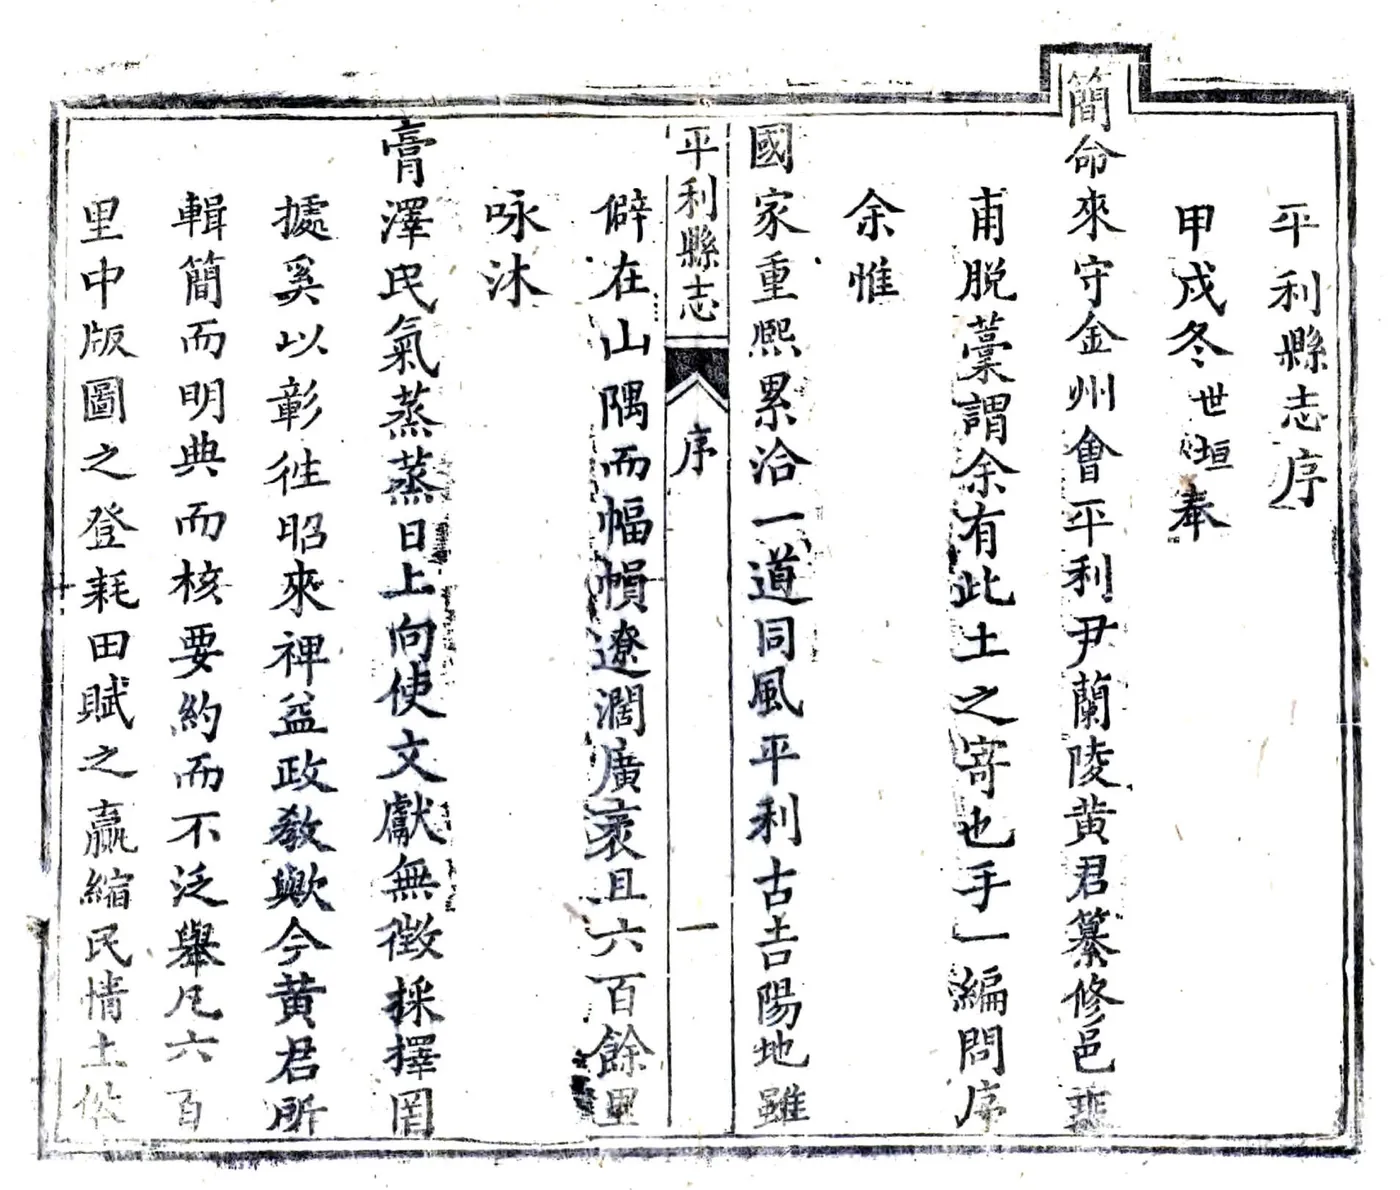 平利縣志序
甲戌冬世垣奉
簡命來守金州會平利尹蘭陵黄君纂修邑乘
甫脱藁謂余有此土之寄也手一編問序
余惟
國家重熙累洽一道同風平利古吉陽地雖
平利縣志 序 一
僻在山隅而幅幀遼濶廣袤且六百餘里
咏沐
膏澤民氣蒸蒸日上向使文獻無徴採擇罔
據奚以彰徃昭來裨益政教歟今黄君所
輯簡而明典而核要約而不泛舉凡六百
里中版圖之登耗田賦之贏縮民情土俗